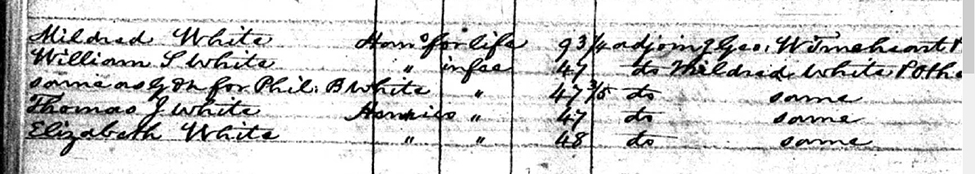 Mildred White Hano for life 93 1/4 adjoing Geo. W Timeheart
William S White " in fee 47 do Mildred White & Othe
same as Gdn for Phil. B White " 47 3/5 do same
Thomas J White Henrico " 47 do same
Elizabeth White " " 48 do same